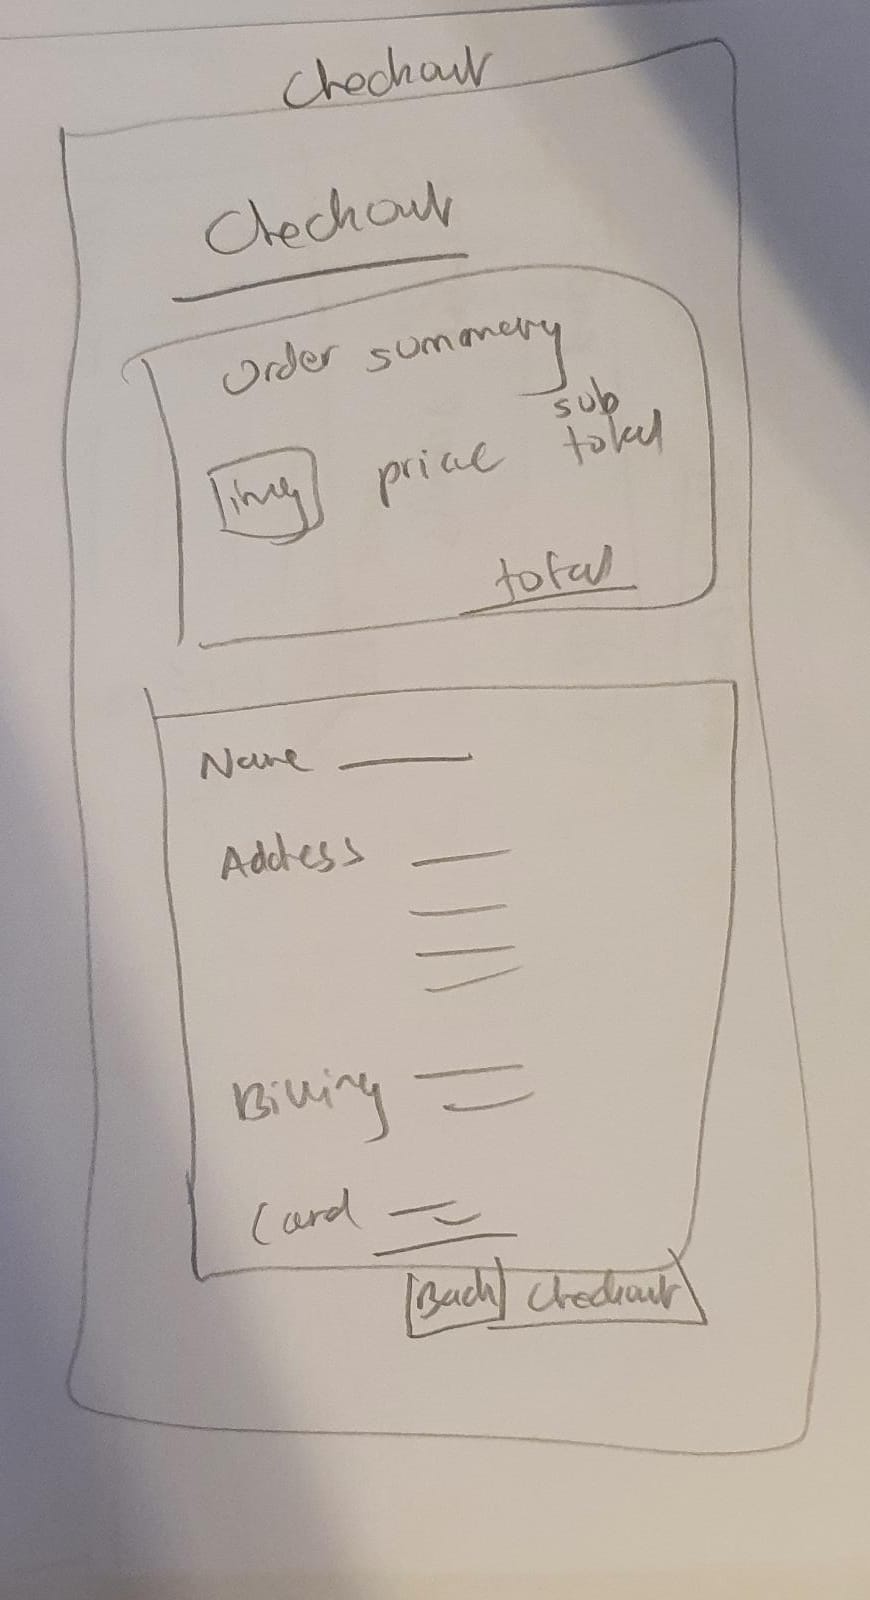 Checkout
Checkout
Order summery
img price sub total
total
Name
Address
Billing
Card
Back Checkout